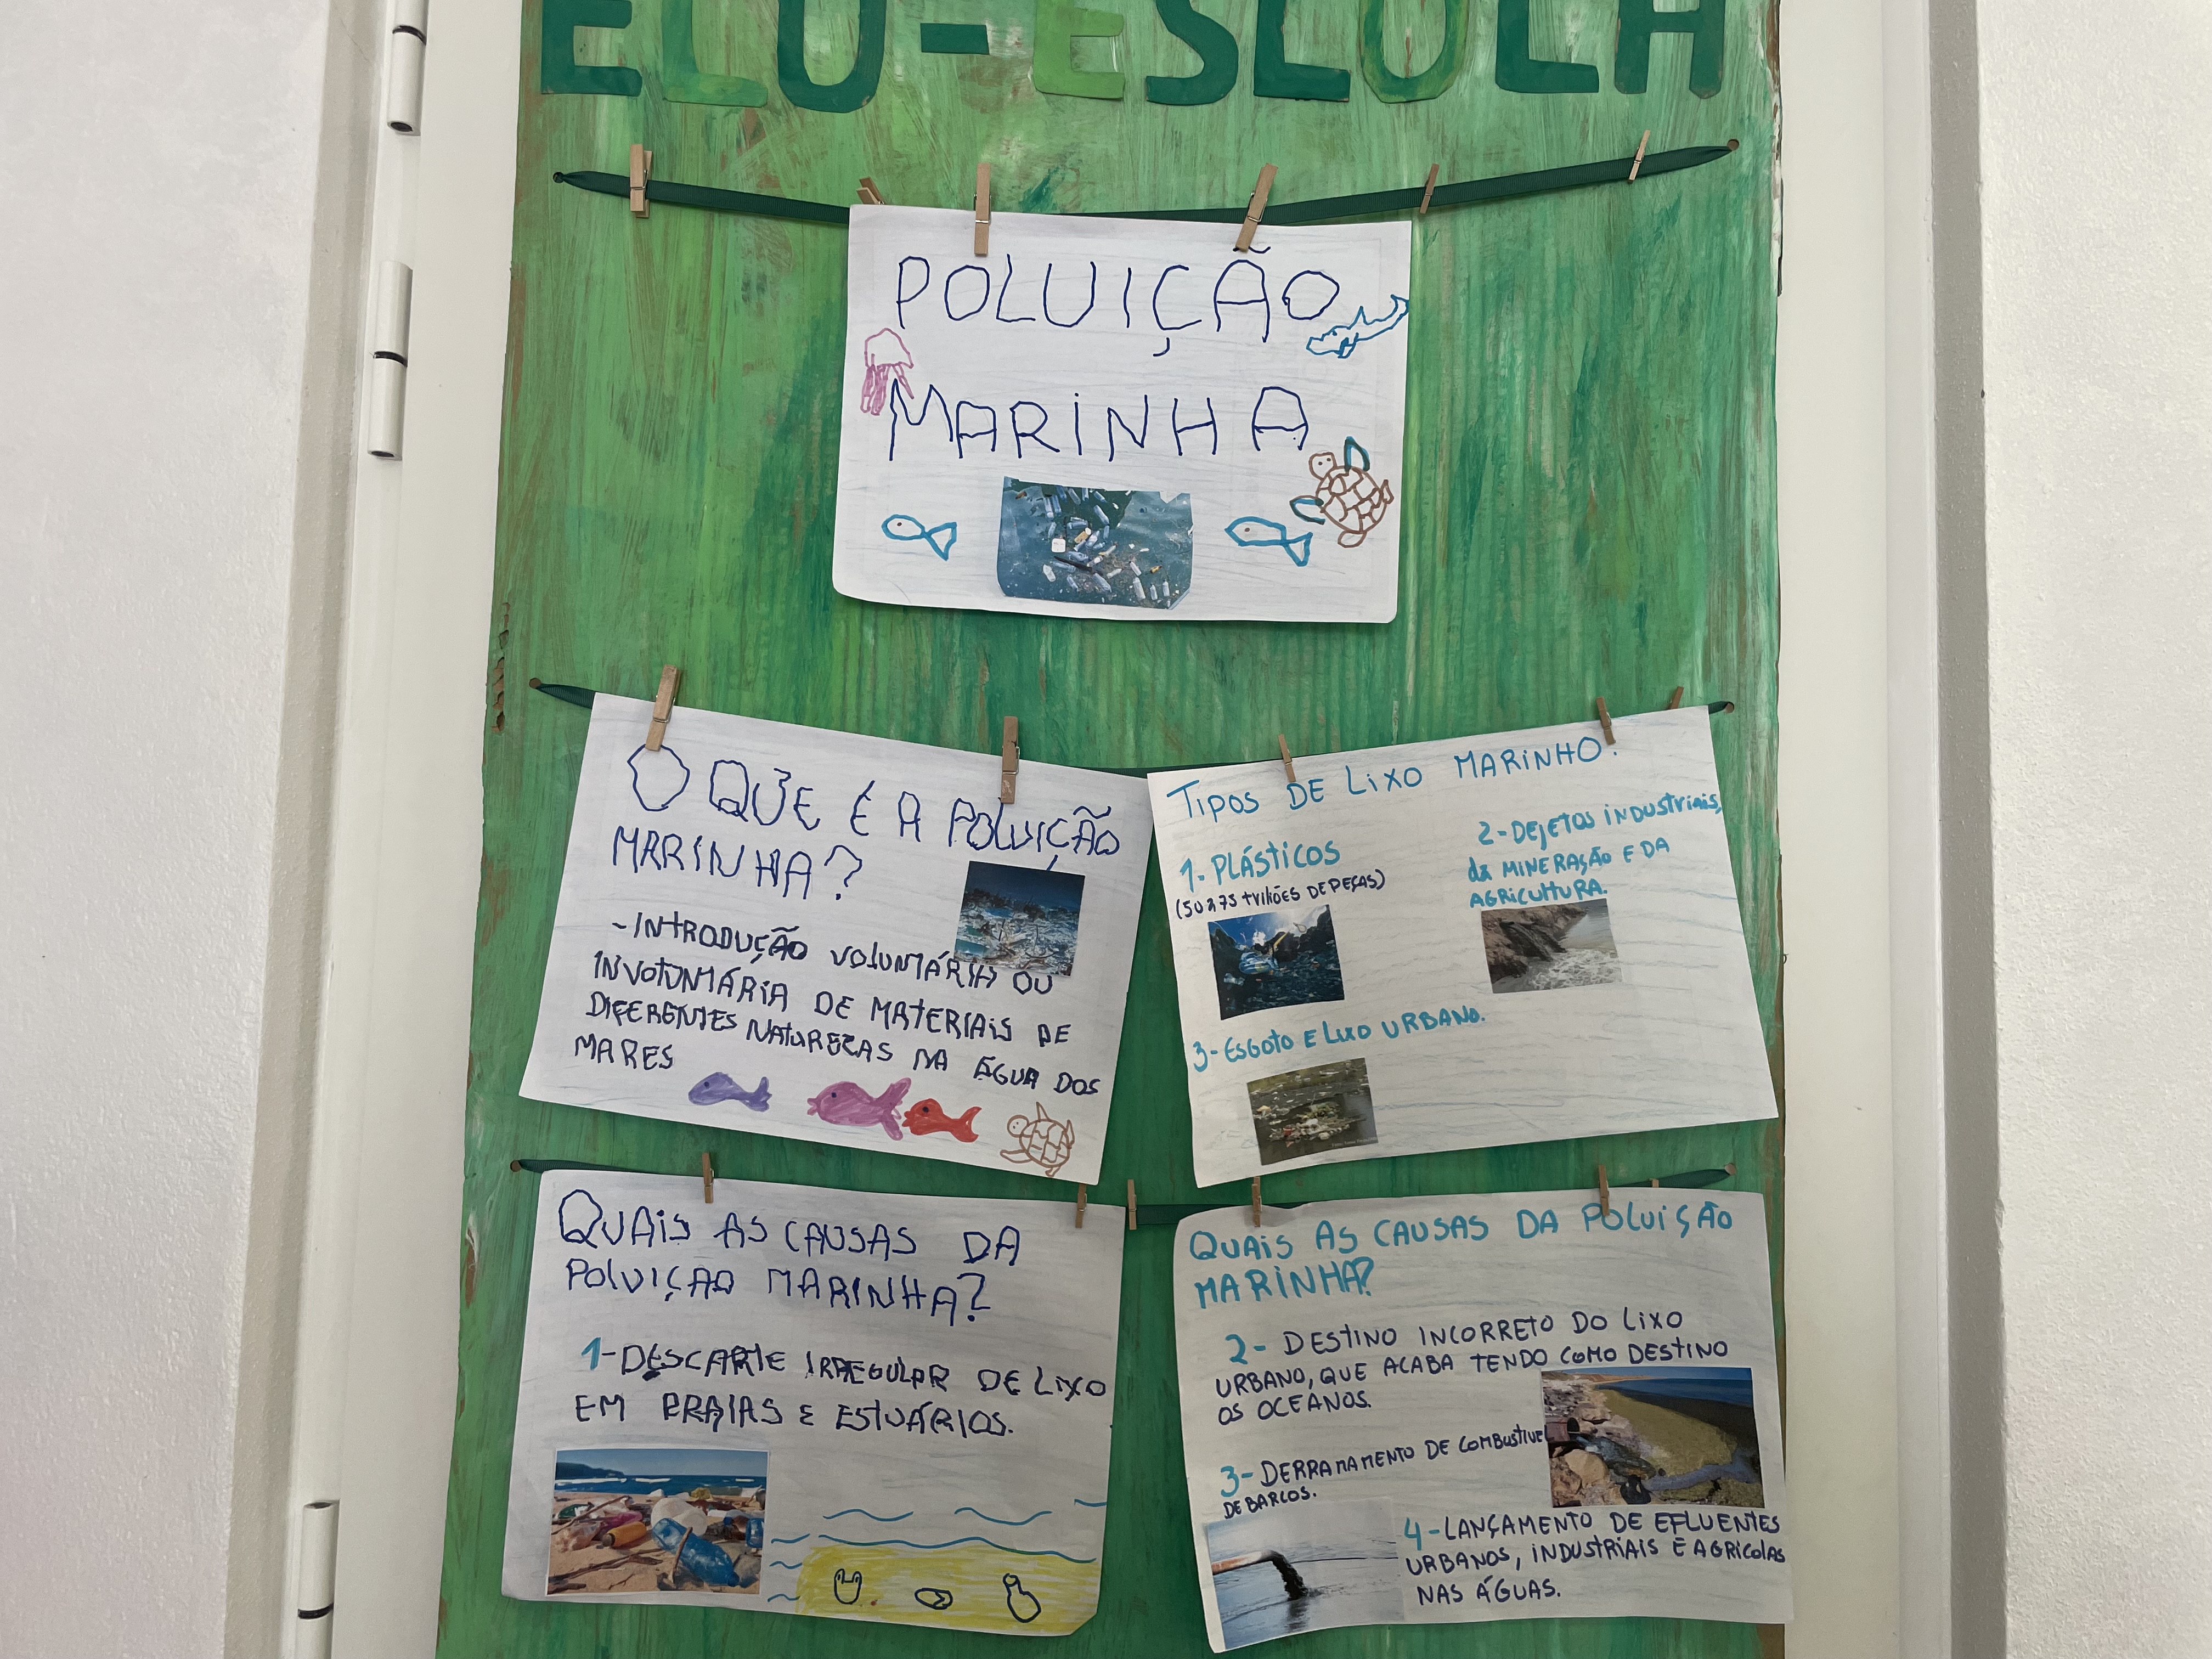 ECO-ESCOLA
POLUIÇÃO
MARINHA
O QUE É A POLUIÇÃO
MARINHA?
-INTRODUÇÃO VOLUNTÁRIA OU
INVOLUNTÁRIA DE MATERIAIS DE
DIFERENTES NATUREZAS NA ÁGUA DOS
MARES
TIPOS DE LIXO MARINHO:
1-PLÁSTICOS
(50 A 75 triliões DE PEÇAS)
2-DEJETOS INDUSTRIAIS,
da MINERAÇÃO E DA
AGRICULTURA.
3-ESGOTO E LIXO URBANO.
QUAIS AS CAUSAS DA
POLUIÇÃO MARINHA?
1-DESCARTE IRREGULAR DE LIXO
EM PRAIAS E ESTUÁRIOS.
QUAIS AS CAUSAS DA POLUIÇÃO
MARINHA?
2- DESTINO INCORRETO DO LIXO
URBANO, QUE ACABA TENDO COMO DESTINO
OS OCEANOS.
3-DERRAMAMENTO DE COMBUSTIVEL
DE BARCOS.
4-LANÇAMENTO DE EFLUENTES
URBANOS, INDUSTRIAIS E AGRICOLAS
NAS ÁGUAS.